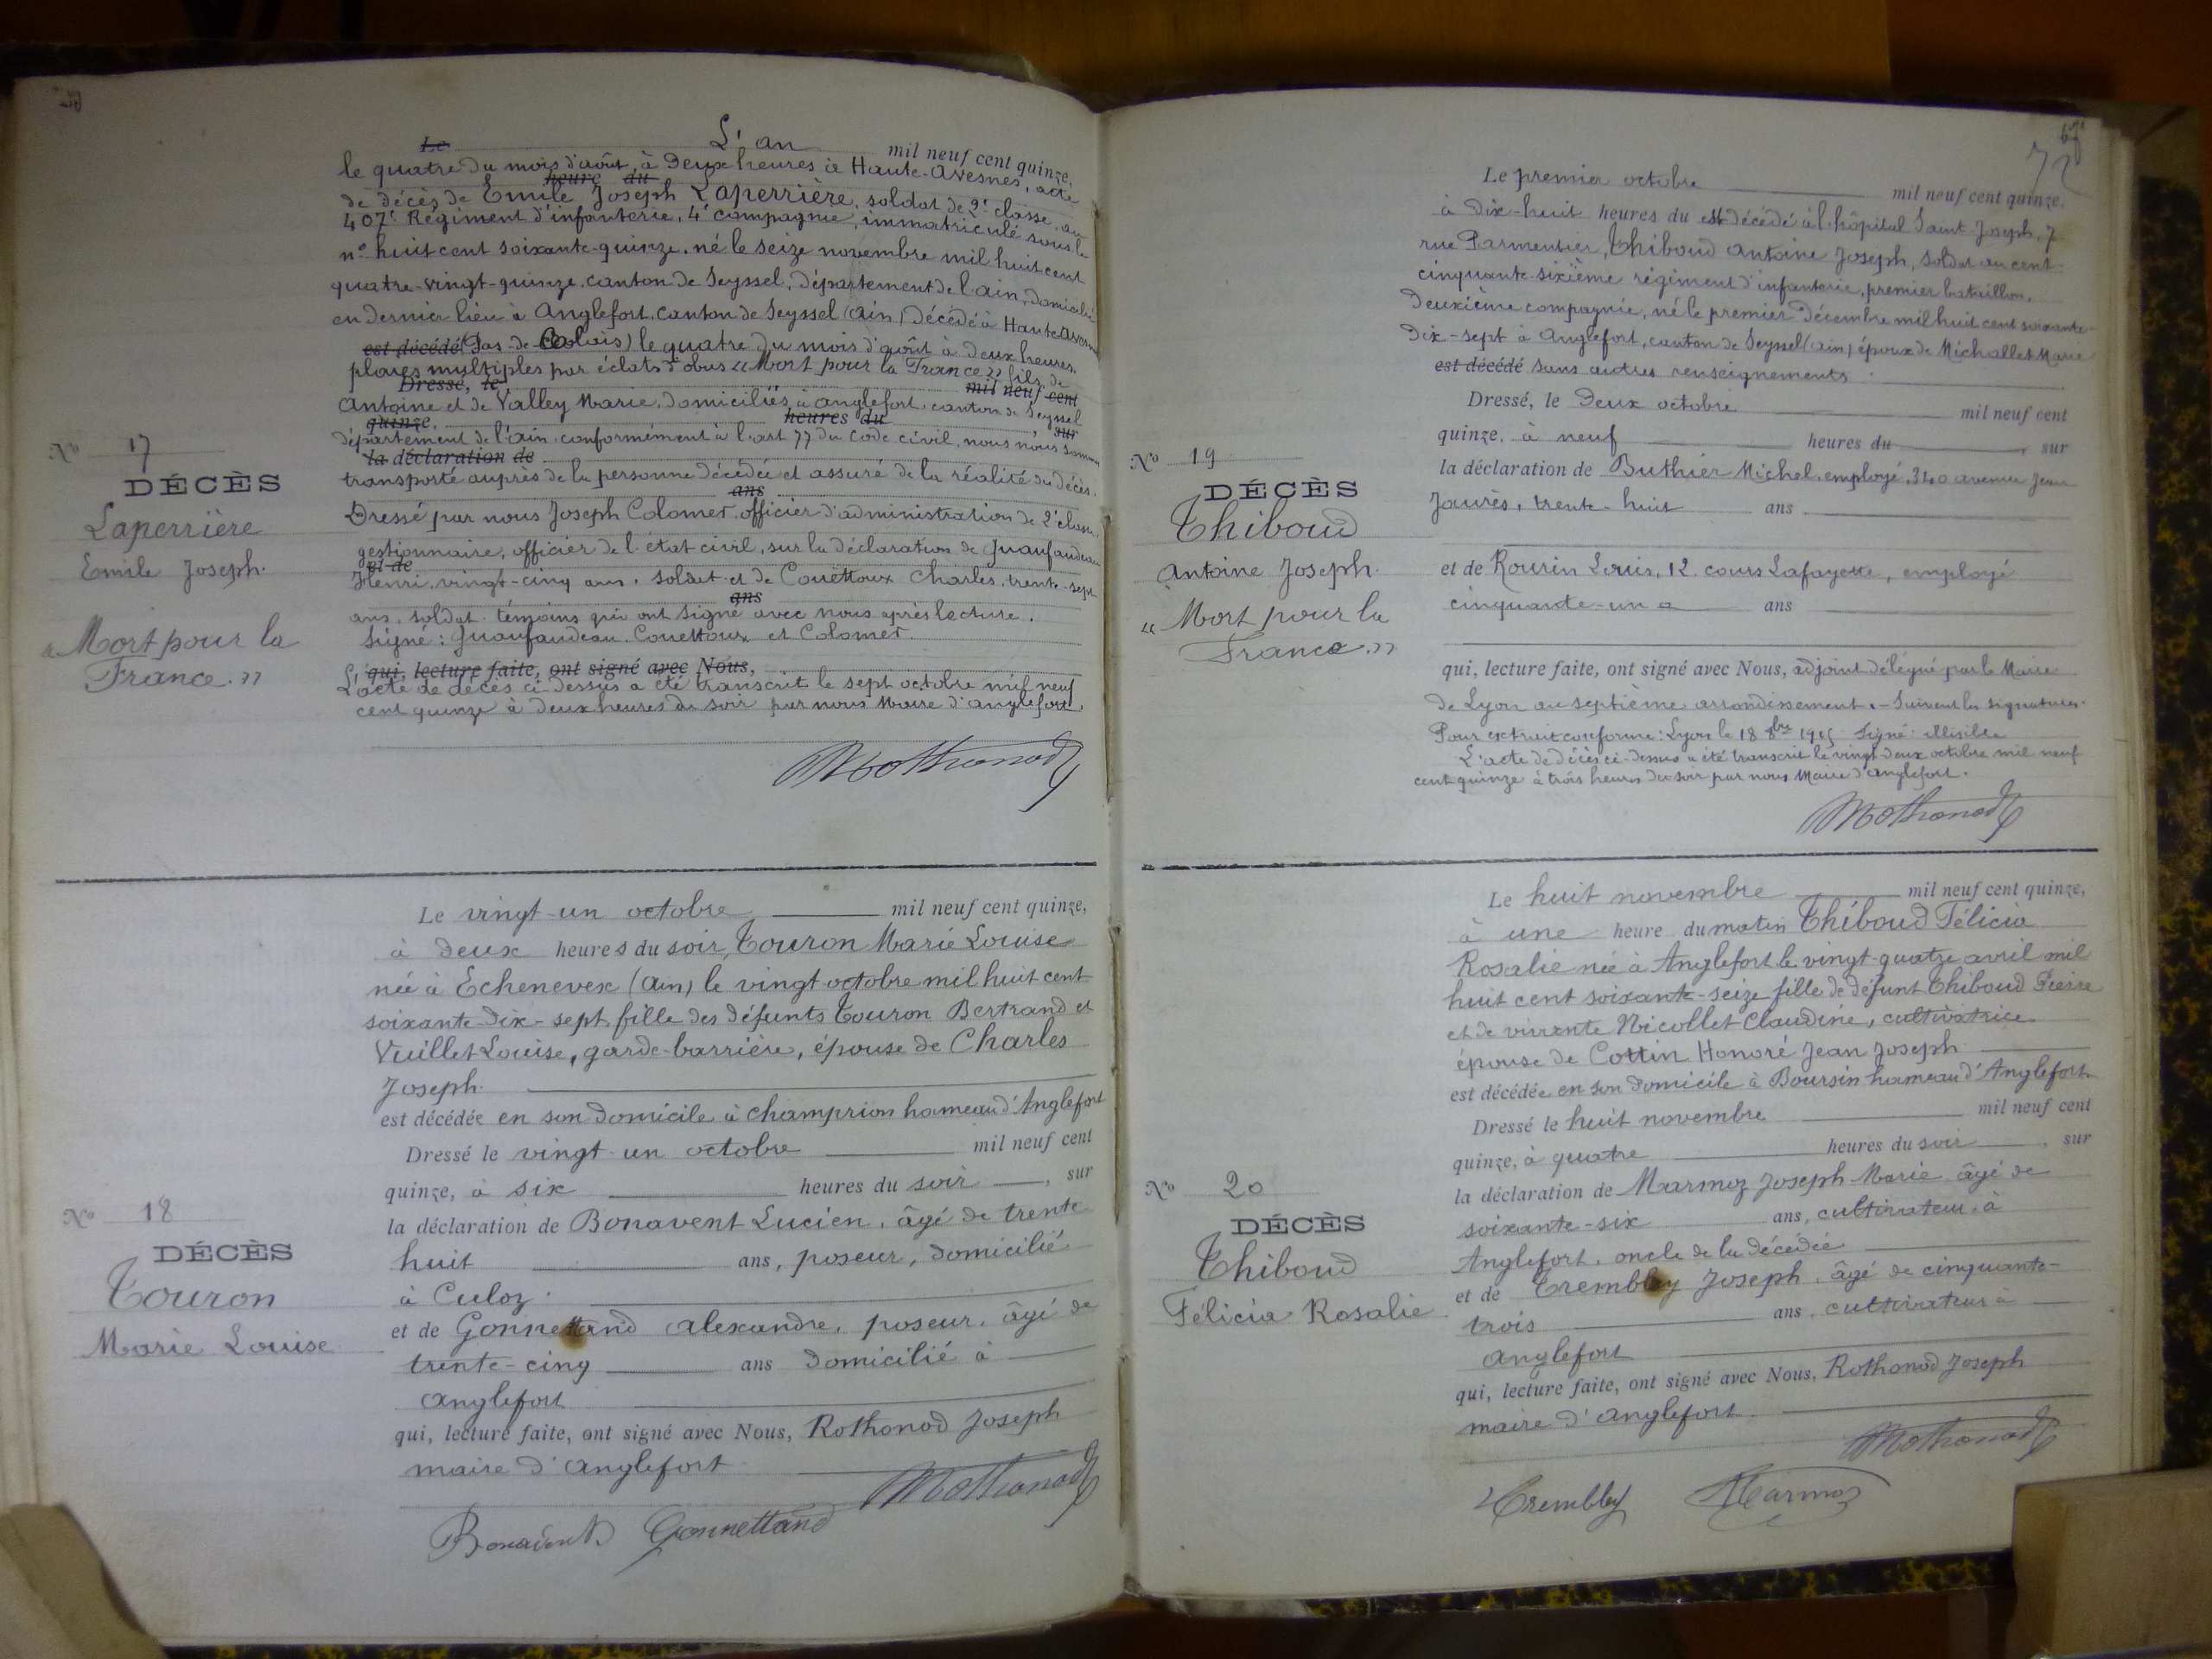 L'an mil neuf cent quinze,
le quatre du mois d'août, à deux heures à Haute-Avesnes, acte
heure du
de décès de Emile Joseph Laperrière, soldat de 2e classe, au
407e Régiment d'infanterie, 4e compagnie, immatriculé sous le
no huit cent soixante-quinze, né le seize novembre mil huit cent
quatre-vingt-quinze, canton de Seyssel, département de l'ain, domicilié
en dernier lieu à Anglefort, canton de Seyssel (ain) décédé à Haute-Avesnes
est décédé (Pas-de-Calais) le quatre du mois d'août à deux heures,
plaies multiples par éclats d'obus « Mort pour la France » fils de
Dressé, le mil neuf cent
Antoine et de Valley Marie, domiciliés à anglefort, canton de Seyssel
quinze, heures du sur
département de l'ain, conformément à l'art 77 du Code civil, nous nous sommes
la déclaration de
transporté auprès de la personne décédée et assuré de la réalité du décès.
ans
Dressé par nous Joseph Colomer, officier d'administration de 2e classe,
gestionnaire, officier de l'état civil, sur la déclaration de Guaufaudeau
et de
Henri, vingt-cinq ans, soldat et de Couëttoux Charles, trente-sept
ans
ans, soldat témoins qui ont signé avec nous après lecture.
Signé : Guaufaudeau, Couettoux et Colomer.
qui, lecture faite, ont signé avec Nous,
L'acte de décès ci-dessus a été transcrit le sept octobre mil neuf
cent quinze à deux heures du soir par nous Maire d'anglefort.
No 17
DÉCÈS
Laperrière
Emile Joseph.
« Mort pour la
France. »
Rothonod
Le vingt-un octobre mil neuf cent quinze,
à deux heures du soir, Touron Marie Louise
née à Echenevex (Ain) le vingt octobre mil huit cent
soixante-dix-sept fille des défunts Touron Bertrand et
Vuillet Louise, garde-barrière, épouse de Charles
Joseph.
est décédée en son domicile à Champrion hameau d'Anglefort
Dressé le vingt-un octobre mil neuf cent
quinze, à six heures du soir, sur
la déclaration de Bonavent Lucien, âgé de trente
huit ans, poseur, domicilié
à Culoz.
et de Gonnettand alexandre, poseur, âgé de
trente-cinq ans domicilié à
anglefort
qui, lecture faite, ont signé avec Nous, Rothonod Joseph
maire d'anglefort
No 18
DÉCÈS
Touron
Marie Louise
Rothonod
Bonavent Gonnettand
72
Le premier octobre mil neuf cent quinze,
à dix-huit heures du est décédé à l'hôpital Saint-Joseph, 7
rue Parmentier, Thiboud Antoine Joseph, soldat au cent-
cinquante-sixième régiment d'infanterie, premier bataillon,
deuxième compagnie, né le premier décembre mil huit cent soixante-
dix-sept à Anglefort, canton de Seyssel (ain) époux de Michallet Marie
est décédé sans autres renseignements
Dressé, le deux octobre mil neuf cent
quinze, à neuf heures du, sur
la déclaration de Buthier Michel, employé, 340 avenue Jean
Jaurès, trente-huit ans
et de Rousin Louis, 12, cours Lafayette, employé
cinquante-un ans
qui, lecture faite, ont signé avec Nous, adjoint délégué par le Maire
de Lyon au septième arrondissement. - Suivent les signatures.
Pour extrait conforme : Lyon le 18 8bre 1915 Signé : illisible
L'acte de décès ci-dessus a été transcrit le vingt-deux octobre mil neuf
cent quinze à trois heures du soir par nous Maire d'anglefort.
No 19
DÉCÈS
Thiboud
Antoine Joseph.
« Mort pour la
France. »
Rothonod
Le huit novembre mil neuf cent quinze,
à une heure du matin Thiboud Félicia
Rosalie née à Anglefort le vingt-quatre avril mil
huit cent soixante-seize fille de défunt Thiboud Pierre
et de vivante Nicollet Claudine, cultivatrice
épouse de Cottin Honoré Jean Joseph
est décédée en son domicile à Boursin hameau d'Anglefort
Dressé le huit novembre mil neuf cent
quinze, à quatre heures du soir, sur
la déclaration de Marmoz Joseph Marie âgé de
soixante-six ans, cultivateur à
Anglefort, oncle de la décédée
et de Trembley Joseph, âgé de cinquante-
trois ans, cultivateur à
anglefort
qui, lecture faite, ont signé avec Nous, Rothonod Joseph
maire d'anglefort.
No 20
DÉCÈS
Thiboud
Félicia Rosalie
Rothonod
Trembley Marmoz